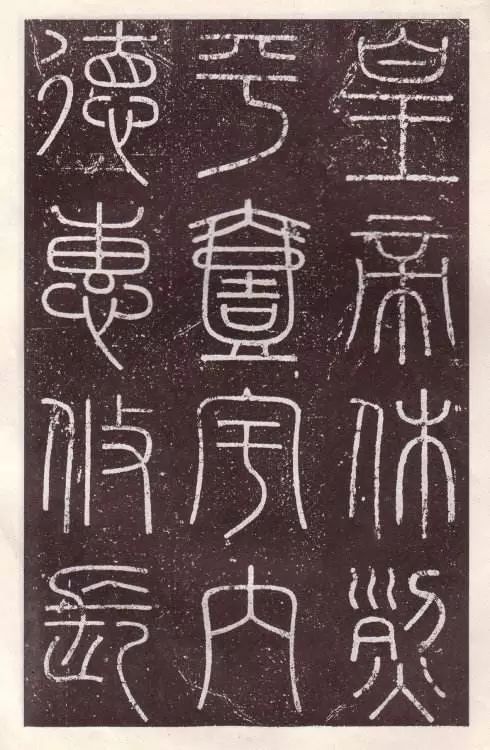 皇帝休烈
平壹宇内
德惠攸長